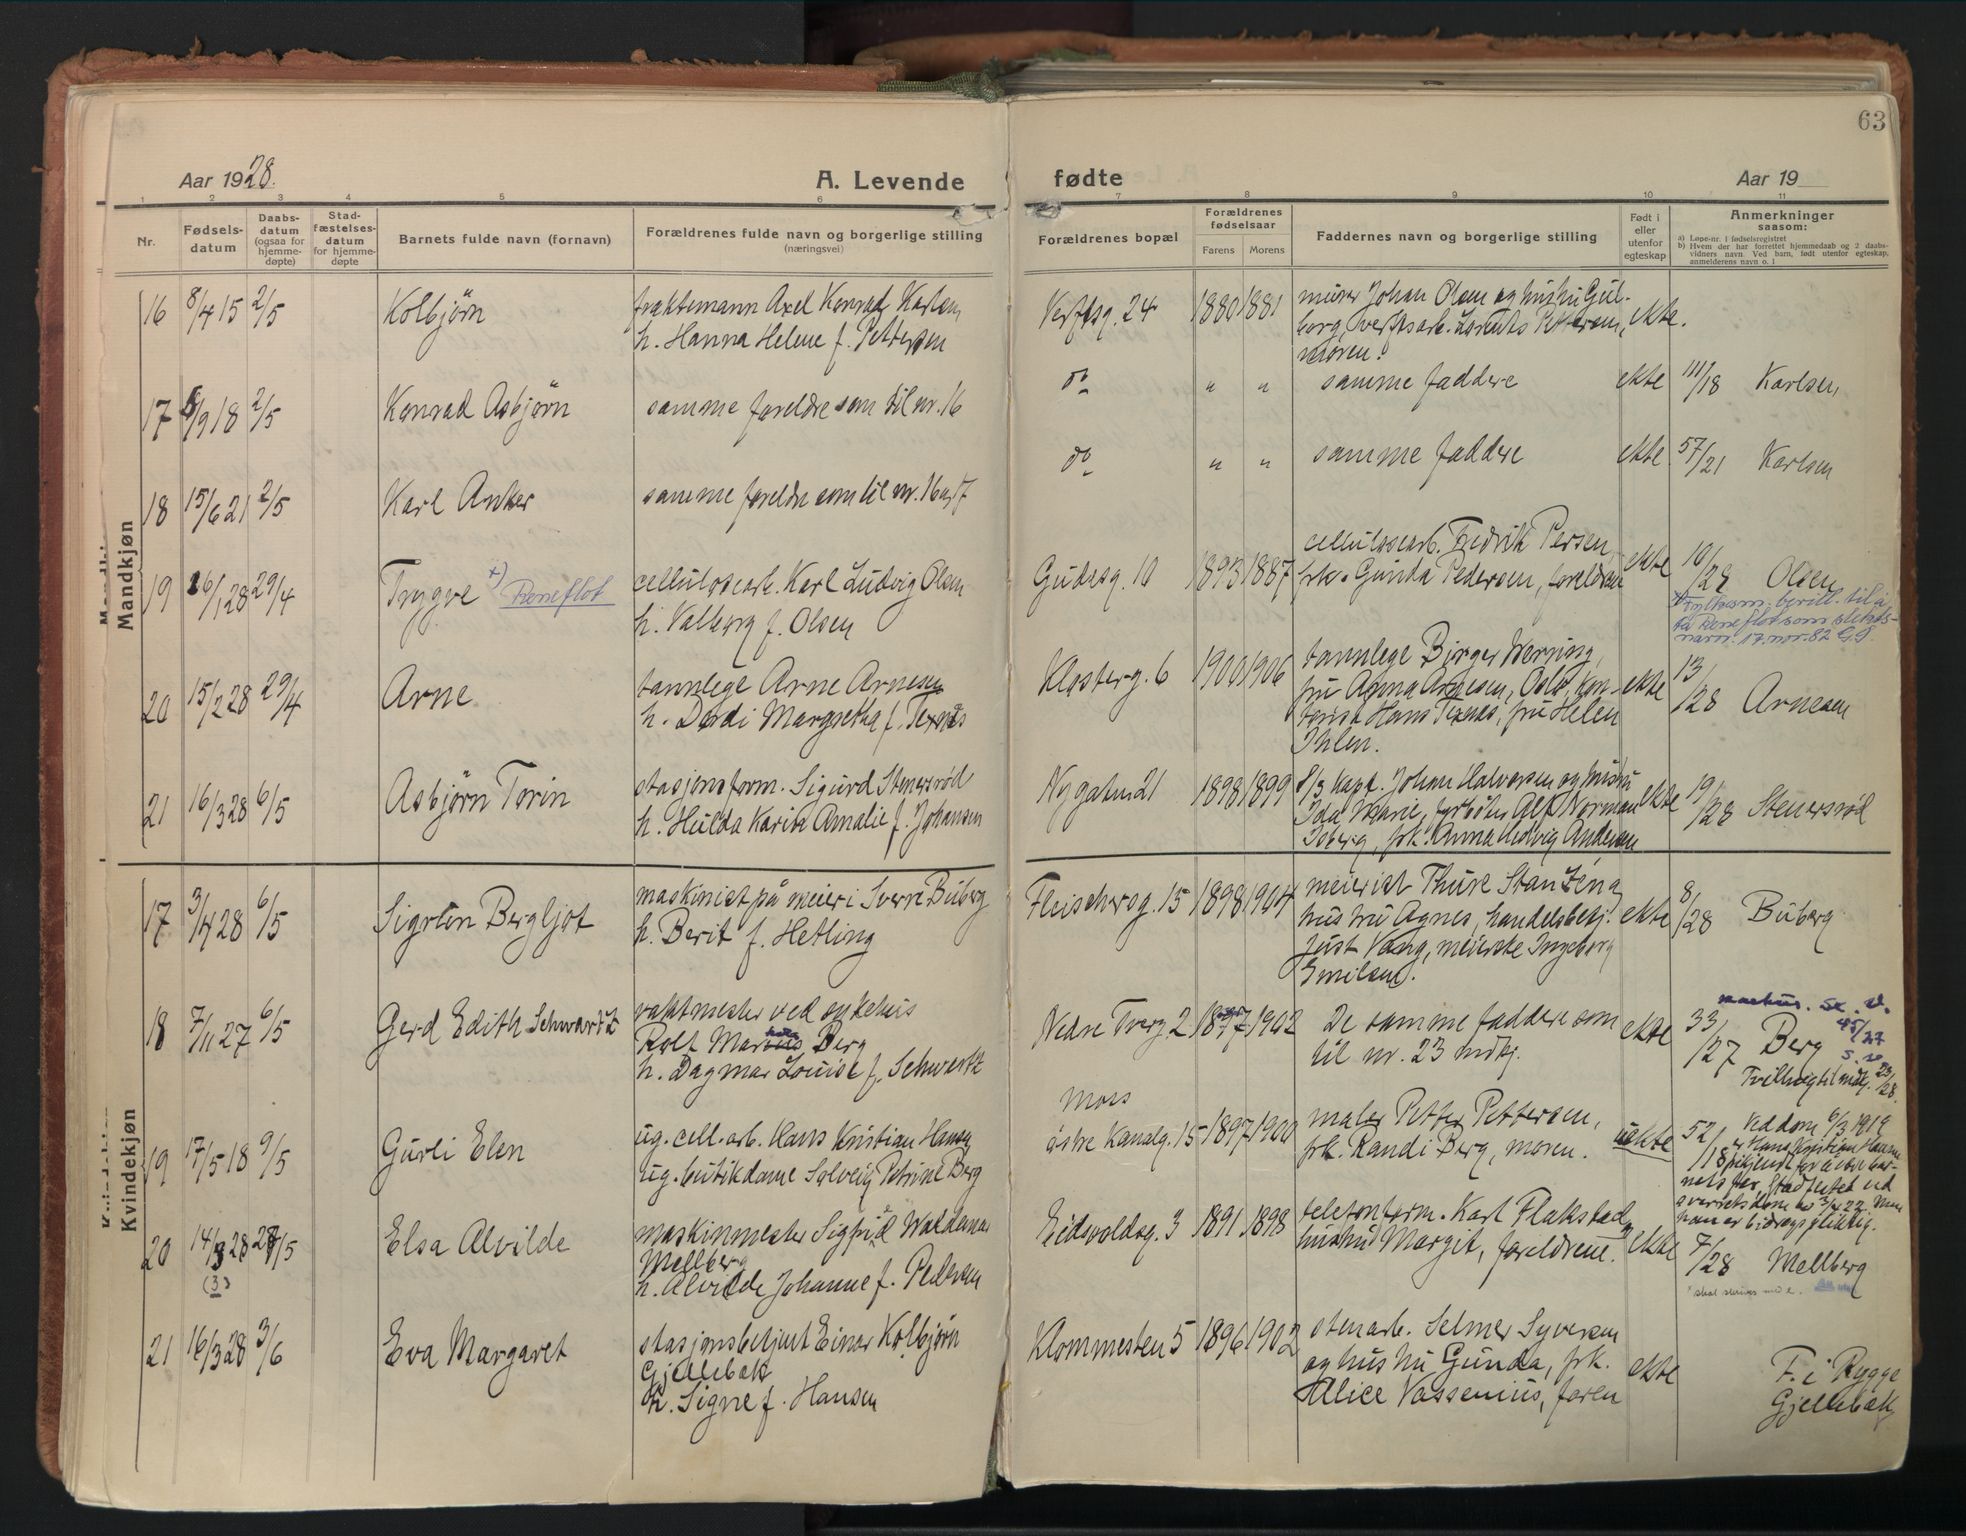 63
Aar 1928.
A. Levende
fødte
Aar 19
1 2 3 4 5 6 7 8 9 10 11
Nr.
Fødsels-
datum
Daabs-
datum
(ogsaa for
hjemme-
døpte)
Stad-
fæstelses-
datum
for hjemme-
døpte
Barnets fulde navn (fornavn)
Forældrenes fulde navn og borgerlige stilling
(næringsvei)
Forældrenes bopæl
Forældrenes
fødselsaar
Farens Morens
Faddernes navn og borgerlige stilling
Født i
eller
utenfor
egteskap
Anmerkninger
saasom:
a) Løpe-nr. i fødselsregistret
b) Hvem der har forrettet hjemmedaab og 2 daabs-
vidners navn. Ved barn, født utenfor egteskap,
anmelderens navn o. l
Mandkjøn
16 8/4 15 2/5 Kolbjörn
h. Hanna Helene f. Pettersen
Verftsg. 24 1880 1881
murer Johan Olsen og hustru Gul-
borg, verftsarb. Pettersen,
moren.
ekte.
17 18 2/5 Konrad Asbjörn
samme foreldre som til nr. 16
do " " samme faddere ekte 111/18 Karlsen
18 15/6 21 2/5 Karl Anker
samme foreldre som til nr. 16 og 17
do " " samme faddere ekte 57/21 Karlsen
19 16/1 28 29/4 Trygve x) Reneflot
cellulosearb. Karl Ludvig Olsen
h. Valborg f. Olsen
Gudesg. 10 1893 1887
cellulosearb. Fredrik Persen,
frk. Gunda Pedersen, foreldrene
ekte 10/28 Olsen
x Fylkesm. bevill. til å
ta Reneflot som slekts-
navn. 17. nov. 82 G.S.
20 15/2 28 29/4 Arne
tannlege Arne Arnesen
h. Dordi Margretha f. Texnes
Klosterg. 6 1900 1906
tannlege Birger Werring,
fru Anna Arnesen, Oslo, kon-
torist Hans Texnes, fru Helen
Ihlen.
ekte 13/28 Arnesen
21 16/3 28 6/5 Asbjörn Torin
stasjonsform. Sigurd Stenersröd
h. Hulda Karin Amalie f. Johansen
Nygatun 21 1898 1899
kapt. Johan Halvorsen og hustru
Ida Marie, fyrböter Alf Norman
Isberg, frk. Anna Hedvig Andersen
ekte 19/28 Stenersröd
Kvindekjøn
17 3/4 28 6/5 Sigrun Bergljot
maskinist på meieri Sverre Buberg
h. Berit f. Hetling
Fleischersg. 15 1898 1904
meierist Thure
hustru Agnes, handelsbetj.
Just Vang, meierske Ingeborg
Emilsen.
ekte 8/28 Buberg
18 7/11 27 6/5 Gerd Edith Schwartz
vaktmester ved sykehus
Rolf Marius Berg
h. Dagmar Louise f. Schwartz
Nedre Tverg. 2 1902
De samme faddere som
til nr. 23 mdkj.
ekte 33/27 Berg
45/27
Tvilling til mdkj. 23/28.
19 17/5 18 9/5 Gurli Elen
ug. cell.-arb. Hans Kristian Hansen
ug. butikdame Solveig Petrine Berg
Moss
östre Kanalg. 15 1897 1900
maler Petter Pettersen,
frk. Randi Berg, moren.
uekte 52/18
Ved dom 6/3 1919
er Hans Kristian Hansen
frikjent for å være bar-
nets far. Stadfestet ved
overrettsdom av 3/4 22. Men
han er bidragspliktig.
20 14/3 28 27/5 (3) Elsa Alvilde
maskinmester Sigfrid Waldemar
Mellberg
h. Alvilde Johanne f. Pedersen
Eidsvoldsg. 3 1891 1898
telefonform. Karl Flakstad,
hustru Margit, foreldrene.
ekte 7/28 Mellberg
* skal skrives med e.
21 16/3 28 3/6 Eva Margaret
stasjonsbetjent Einar Kolbjörn
Gjellebæk
h. Signe f. Hansen
Klommesten 5 1896 1902
stenarb. Selmer Syversen
og hustru Gunda, frk.
Alice Vassenius, faren
ekte
F. i Rygge
Gjellebæk